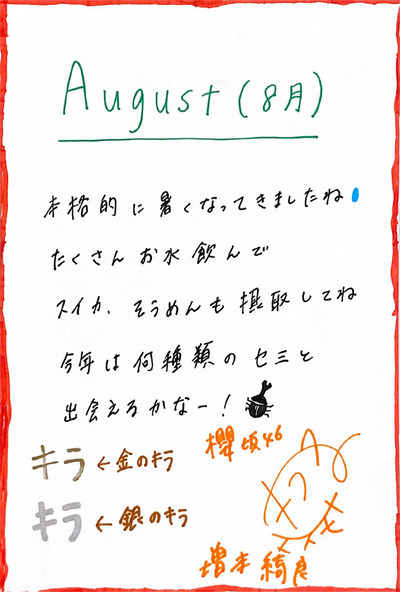 August (8月)
本格的に暑くなってきましたね
たくさんお水飲んで
スイカ、そうめんも摂取してね
今年は何種類のセミと
出会えるかなー!
キラ ←金のキラ
キラ ←銀のキラ
櫻坂46
増本綺良